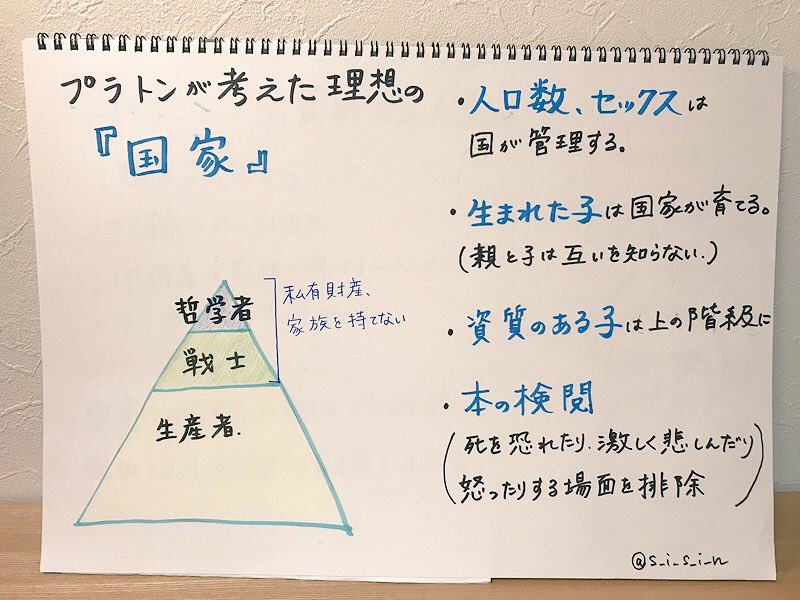 プラトンが考えた理想の
『国家』
哲学者
戦士
生産者.
私有財産、
家族を持てない
・人口数、セックスは
国が管理する。
・生まれた子は国家が育てる。
(親と子は互いを知らない.)
・資質のある子は上の階級に
・本の検閲
(死を恐れたり、激しく悲しんだり
怒ったりする場面を排除)
@s_i_s_i_n